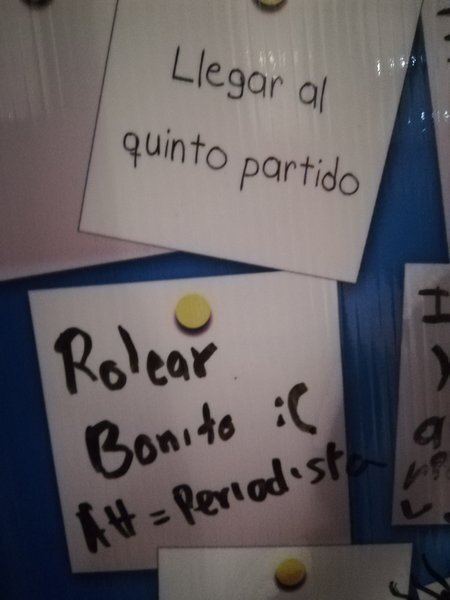 Llegar al
quinto partido
Rolear
Bonito :(
AH = Periodista